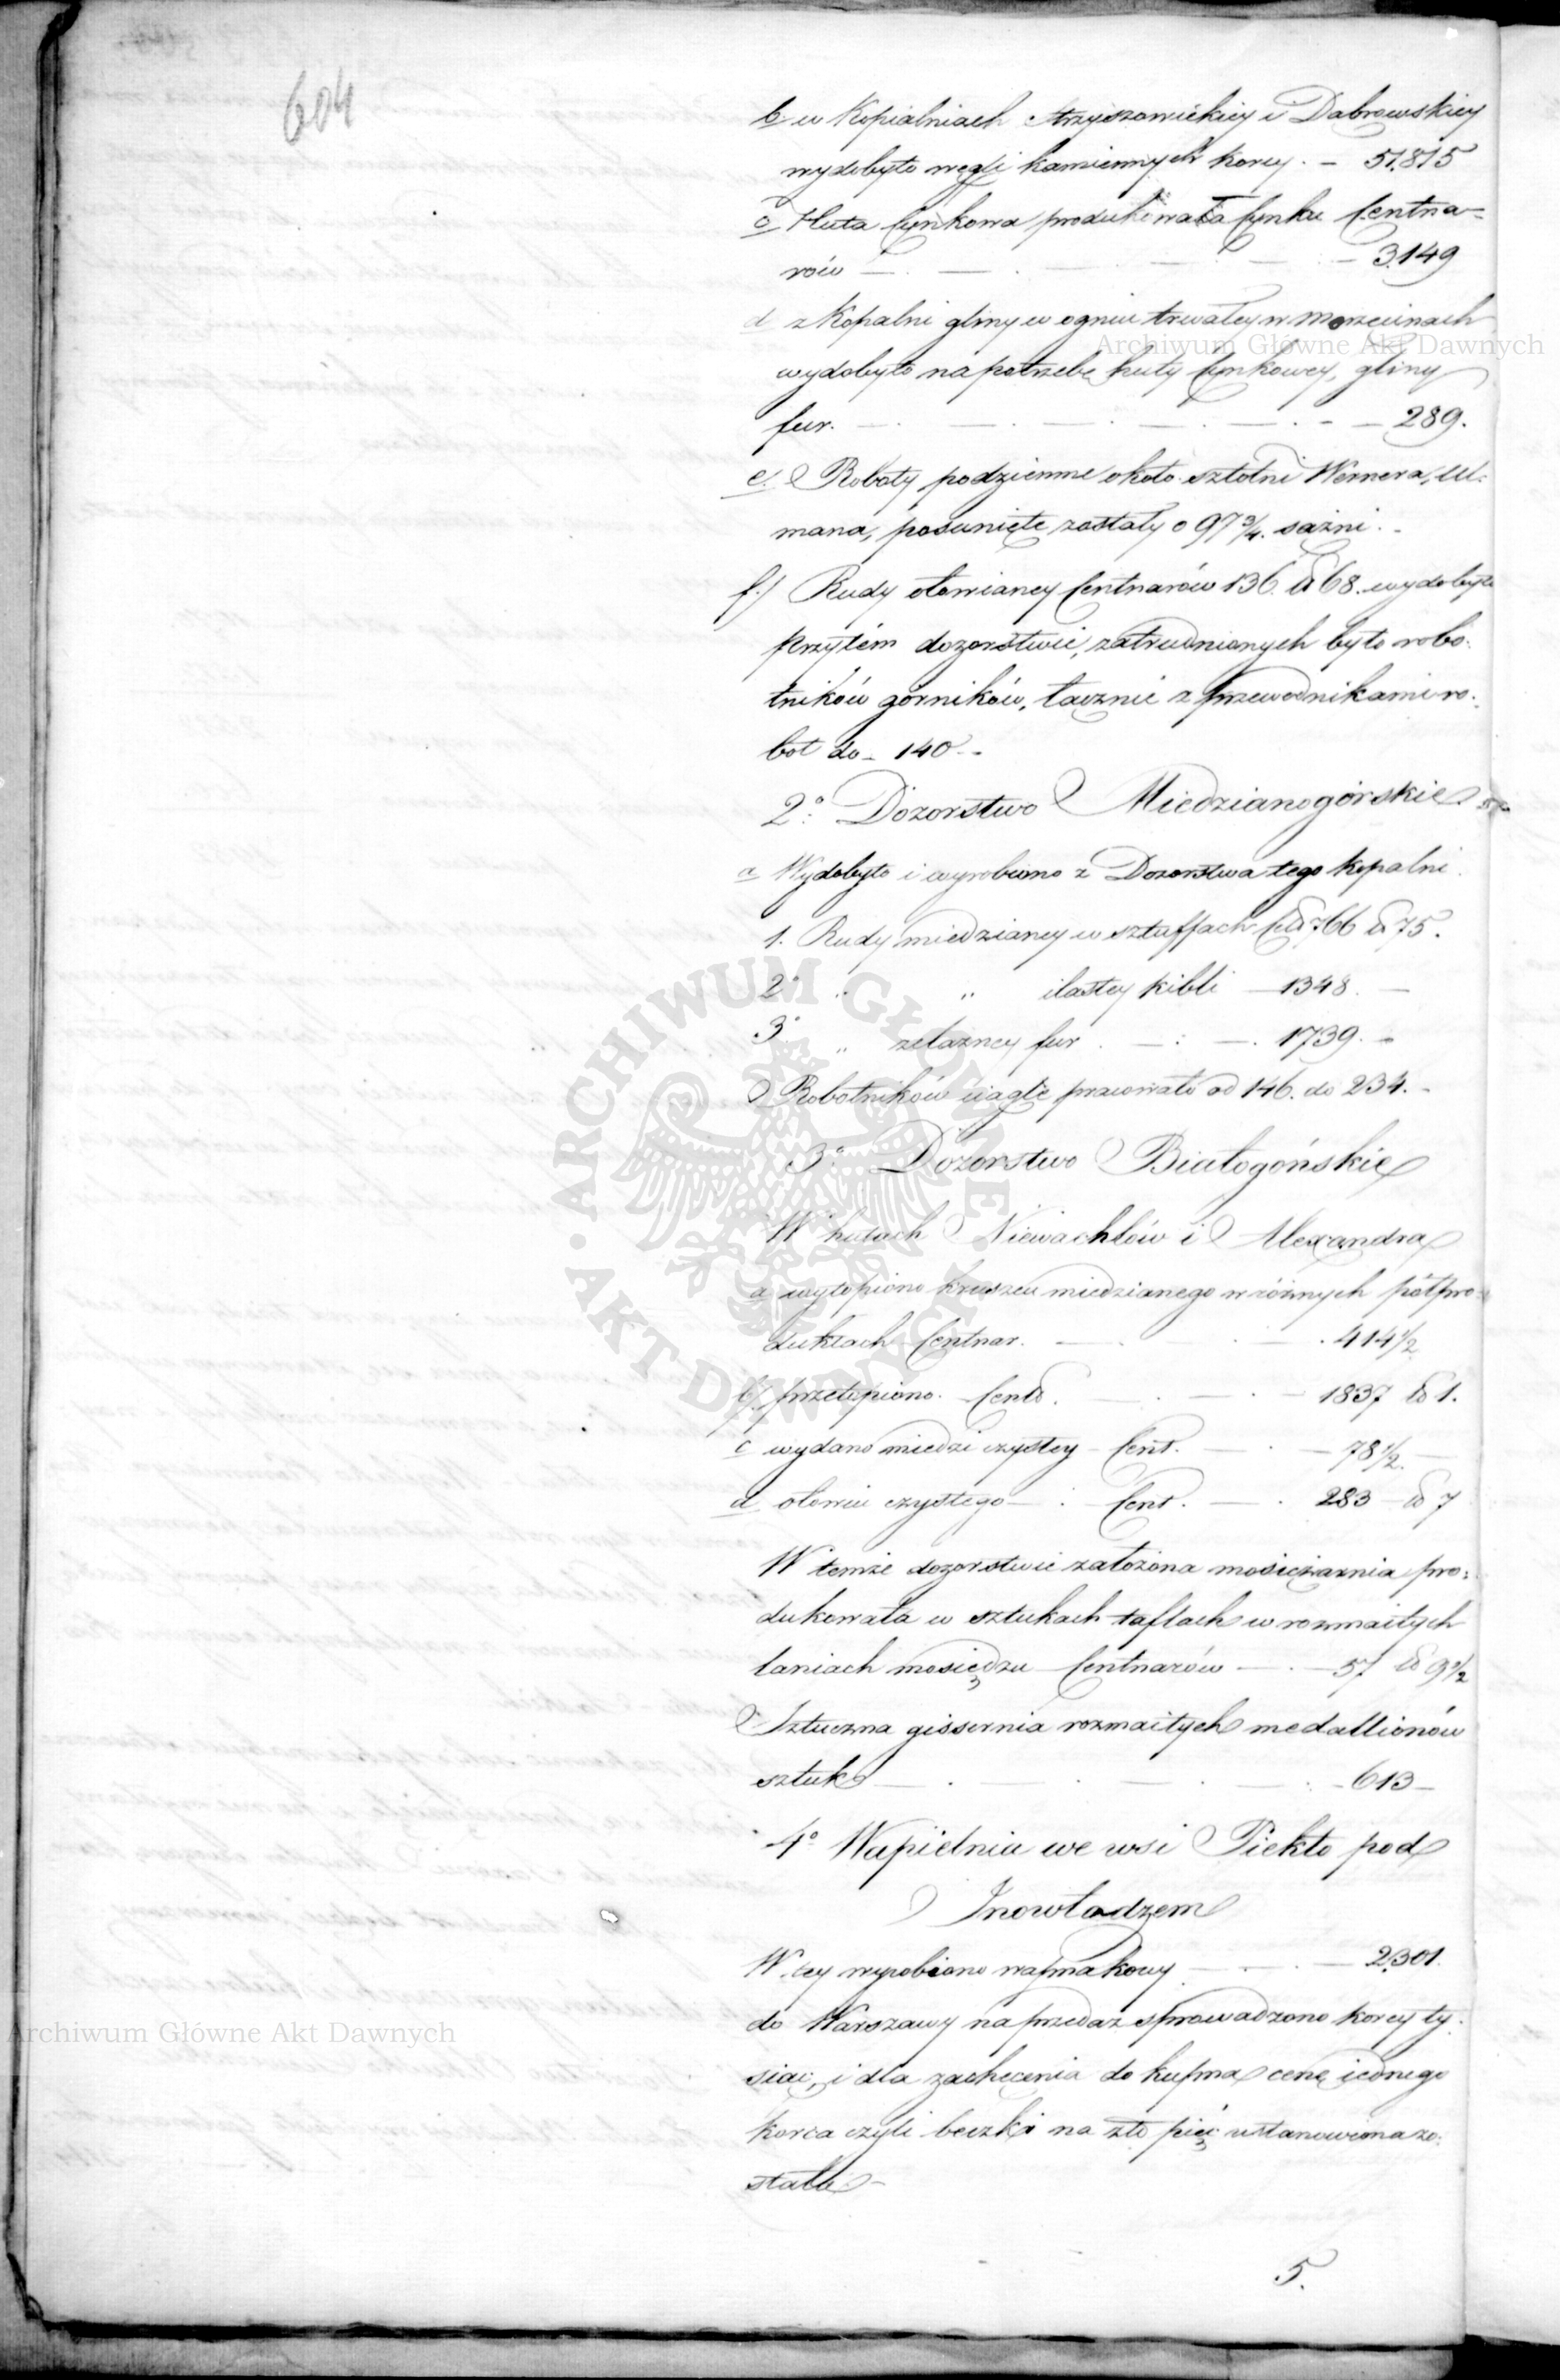 604
b w Kopialniach Strzyżowickiey i Dąbrowskiey
wydobyto węgli kamiennych korcy. – 51,815
c Huta Cynkowa produkowała Cynku Centna-
rów — . — . — . — 3,149
d z Kopalni gliny w ogniu trwałey w Morzewinach
wydobyto na potrzebę huty Cynkowey, gliny
fur. — . — . — . — . — 289.
e. Roboty podziemne około sztolni Wernera, Ul-
mana, posunięte zostały o 97 3/4. sążni. -
f./ Rudy ołowianey Centnarów 136. ℔ 68. wydobyto
przytém dozorstwie, zatrudnionych było robo-
tników górników, łącznie z przewodnikami ro-
bot do - 140 -
2º Dozorstwo Miedzianogórskie
a Wydobyto i wyrobiono z Dozorstwa tego kopalni.
1. Rudy miedzianey w sztuffach C 766 ℔ 75.
2º „ „ ilastey kibli — 1348. —
3º „ żelazney fur . — : — . 1739. -
Robotników ciągle pracowało od 146. do 234. -
3º Dozorstwo Białogońskie
W hutach Niewachlów i Alexandra
a wytopiono kruszcu miedzianego w różnych półpro-
duktach Centnar. — . — . 414 1/2
b/ przetopiono. Cent. — . — . — 1837 ℔ 1.
c wydano miedzi czystey – Cent. — . — 78 1/2. —
d ołowiu czystego — . Cent. — . 283 — ℔ 7
W temże dozorstwie założona mosiężarnia pro-
dukowała w sztukach taflach w rozmaitych
laniach mosiędzu Centnarów — . — 57 ℔ 9 1/2
Sztuczna gissernia rozmaitych medallionów
sztuk — . — . — . — 613 —
4º Wapielnia we wsi Piekło pod
Inowłodzem
W tey wyrobiono wapna korcy — . — 2,301.
do Warszawy na przedaż sprowadzono korcy ty-
siąc, i dla zachęcenia do kupna cenę iednego
korca czyli beczki na złp pięć ustanowiona zo-
stała -
5.
Archiwum Główne Akt Dawnych
Archiwum Główne Akt Dawnych
ARCHIWUM GŁÓWNE • AKT DAWNYCH •